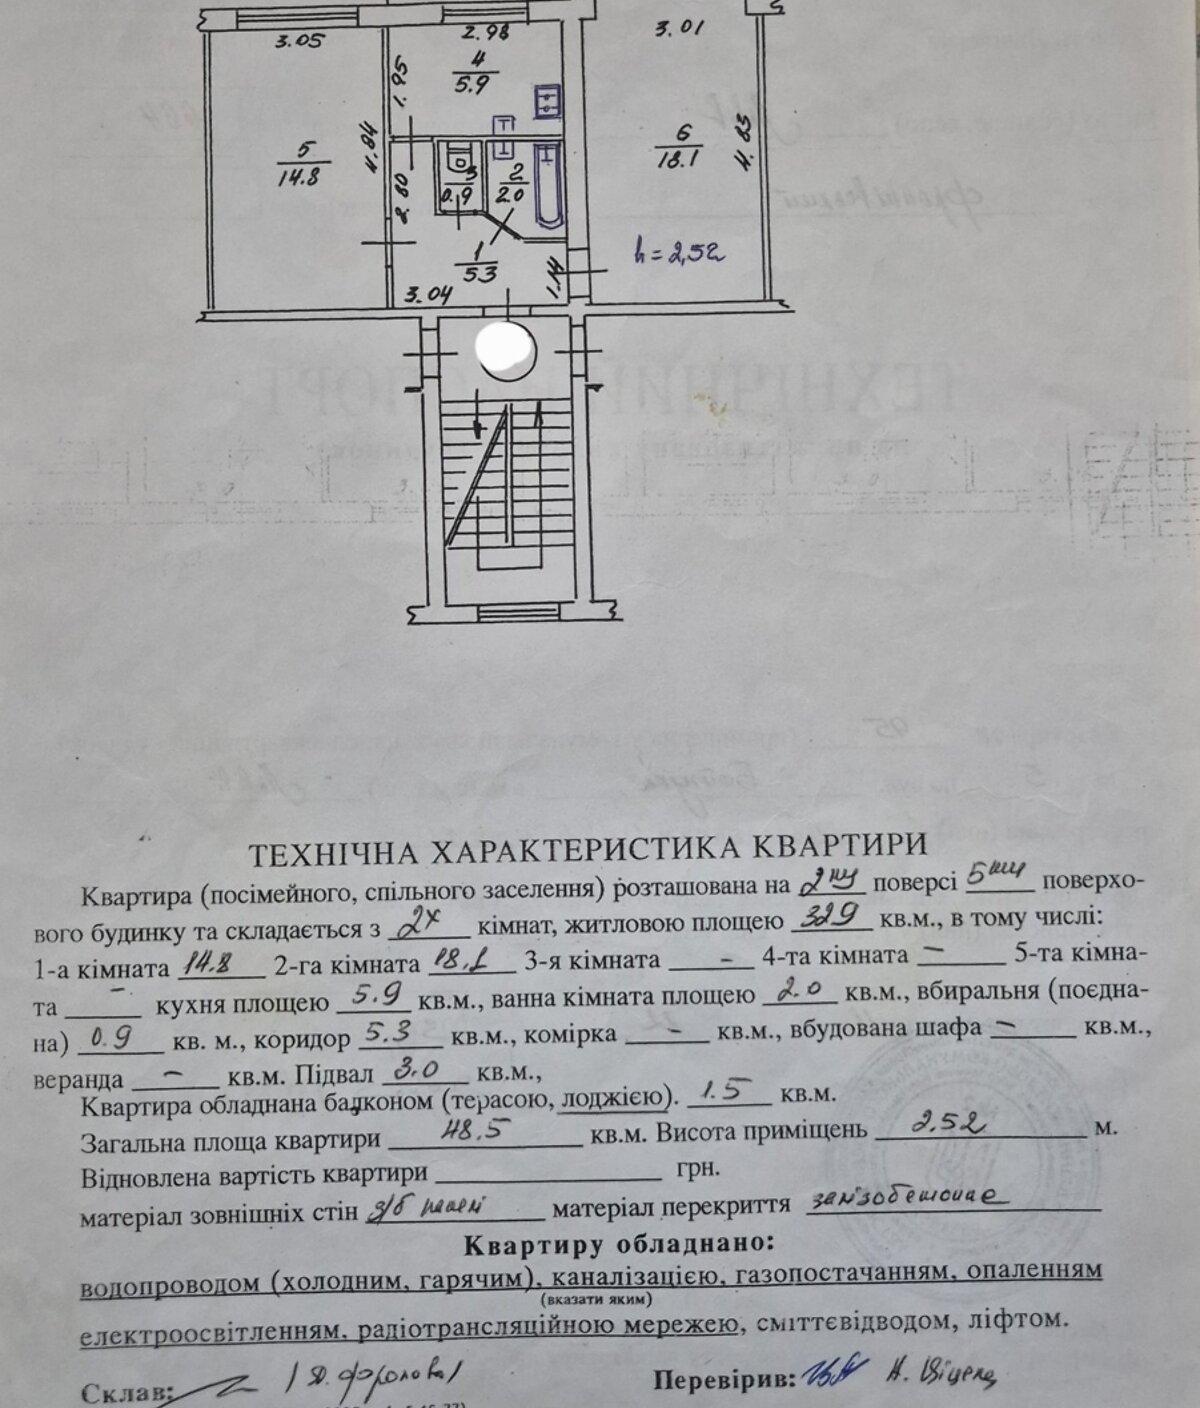 3.05
2.98
3.01
4
5.9
1.95
4.84
5
14.8
6
18.1
4.83
3
0.9
2
2.0
2.80
h = 2,52
1
5.3
1.14
3.04
ТЕХНІЧНА ХАРАКТЕРИСТИКА КВАРТИРИ
Квартира (посімейного, спільного заселення) розташована на 2му поверсі 5ти поверхо-
вого будинку та складається з 2х кімнат, житловою площею 32.9 кв.м., в тому числі:
1-а кімната 14.8 2-га кімната 18.1 3-я кімната - 4-та кімната - 5-та кімна-
та - кухня площею 5.9 кв.м., ванна кімната площею 2.0 кв.м., вбиральня (поєдна-
на) 0.9 кв. м., коридор 5.3 кв.м., комірка - кв.м., вбудована шафа - кв.м.,
веранда - кв.м. Підвал 3.0 кв.м.,
Квартира обладнана балконом (терасою, лоджією). 1.5 кв.м.
Загальна площа квартири 48.5 кв.м. Висота приміщень 2.52 м.
Відновлена вартість квартири грн.
матеріал зовнішніх стін з/б панелі матеріал перекриття залізобетонне
Квартиру обладнано:
водопроводом (холодним, гарячим), каналізацією, газопостачанням, опаленням
(вказати яким)
електроосвітленням, радіотрансляційною мережею, сміттєвідводом, ліфтом.
Склав: Фролова Перевірив: Н.